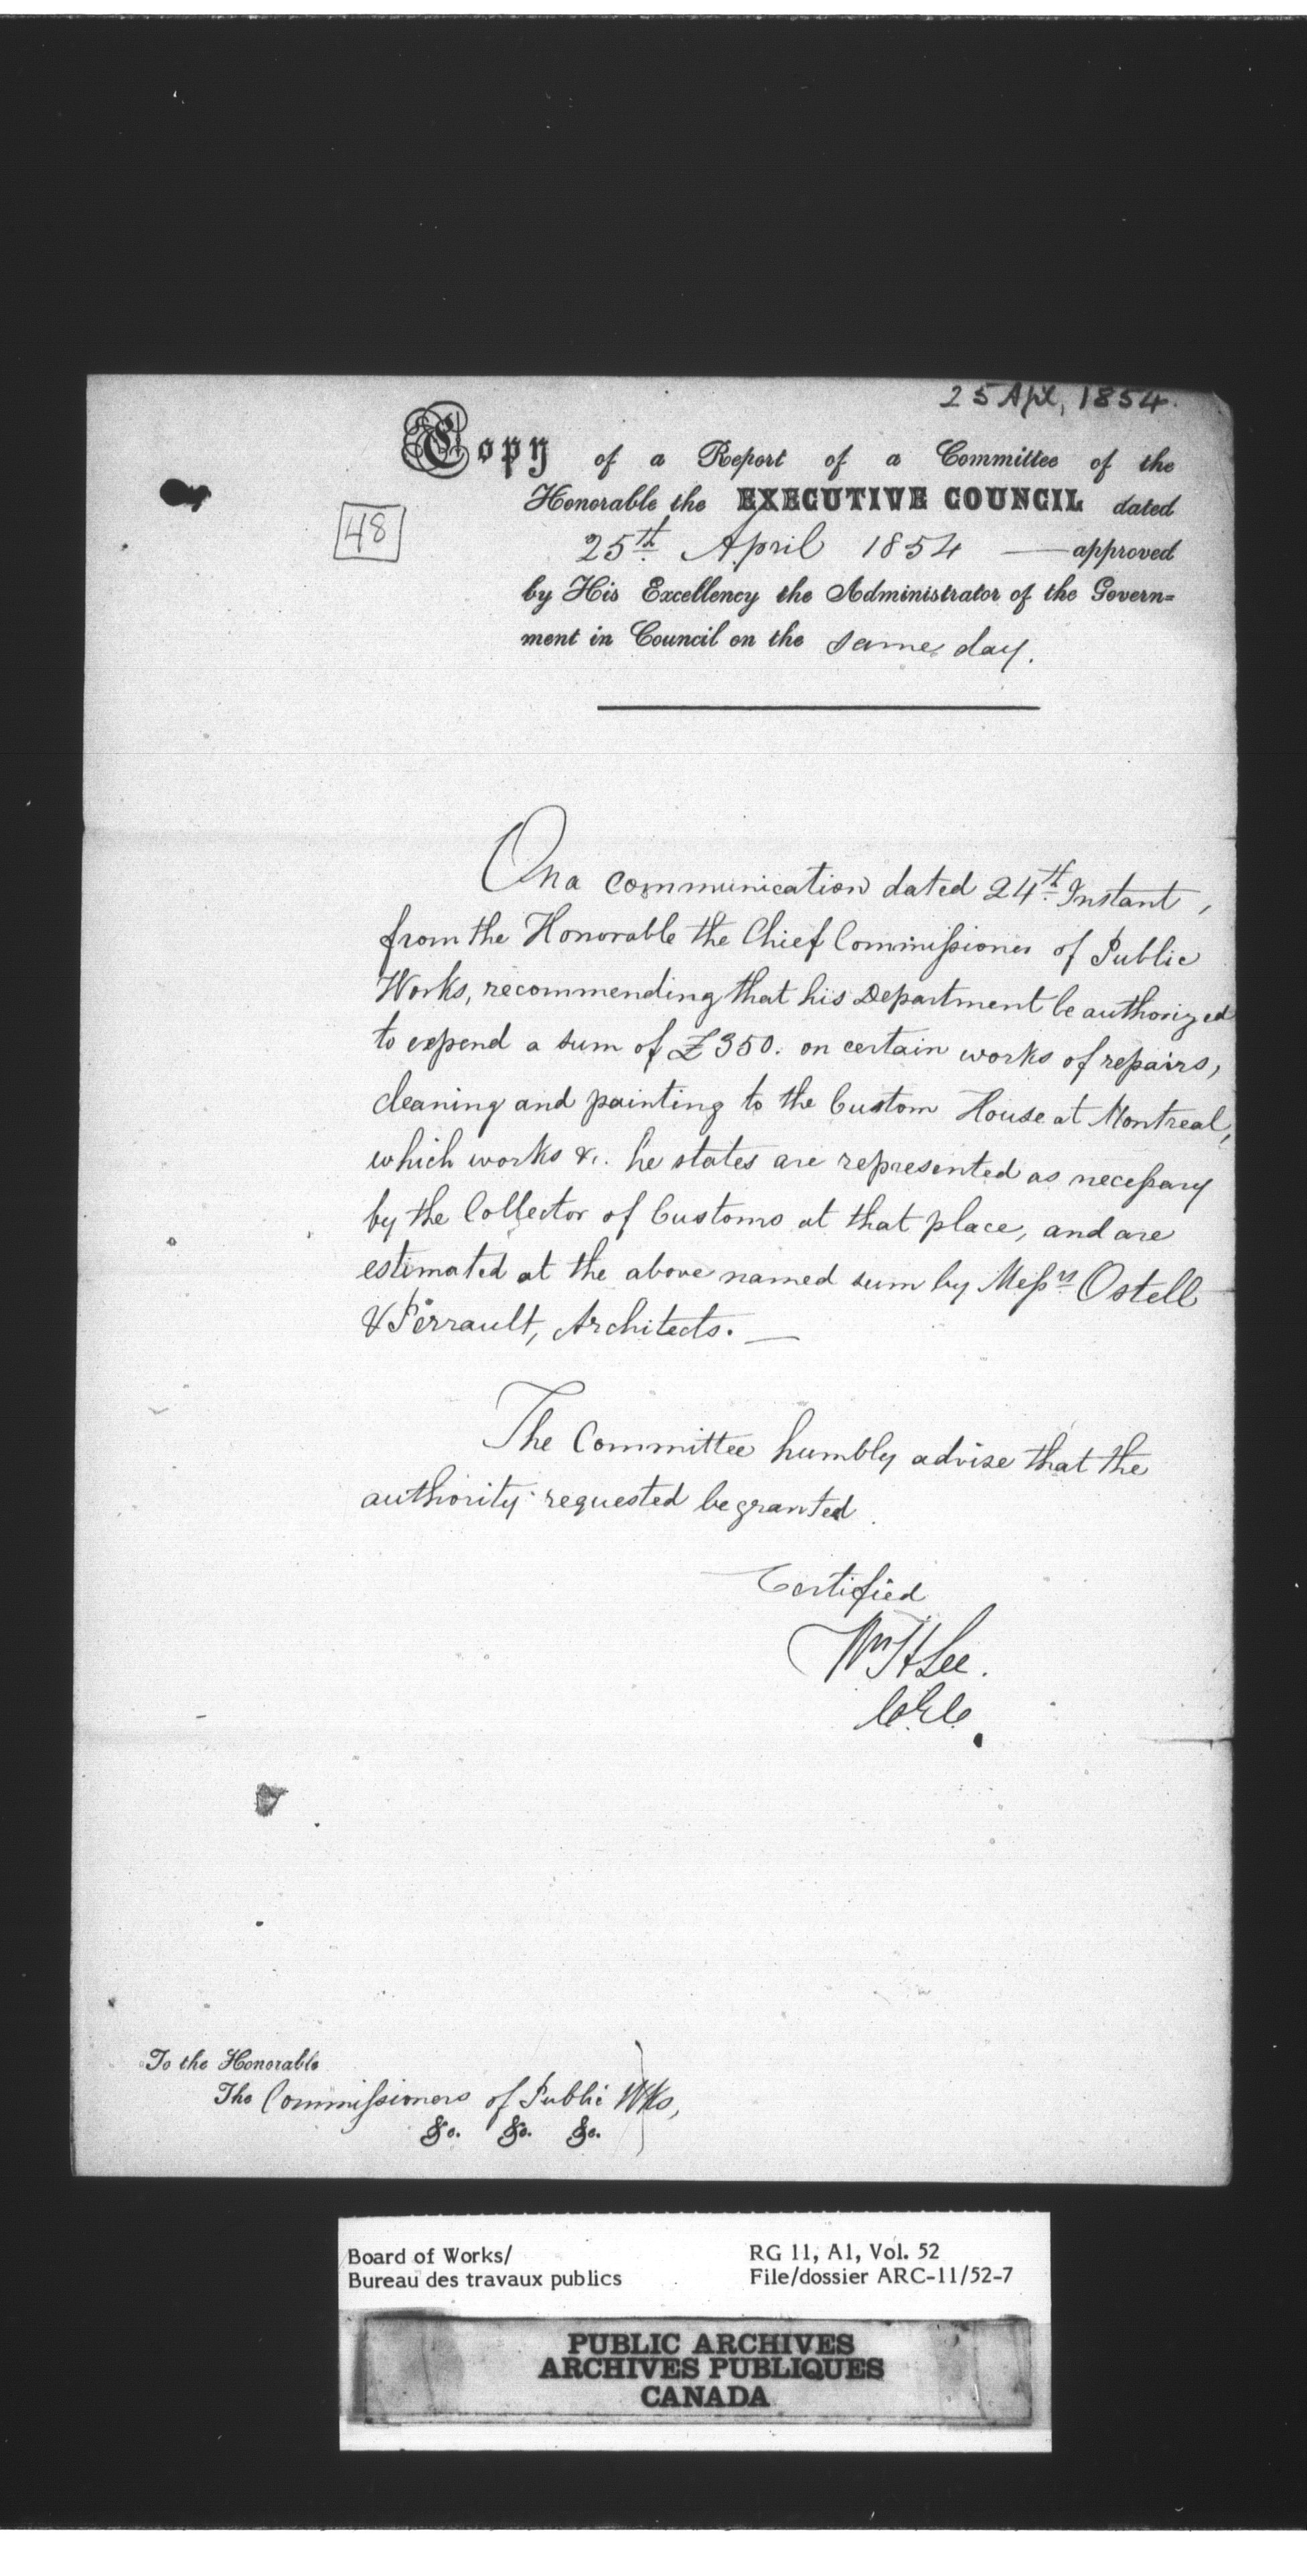 25 Apl, 1854.
Copy of a Report of a Committee of the
Honorable the EXECUTIVE COUNCIL dated
48
25th April 1854 — approved
by His Excellency the Administrator of the Govern=
ment in Council on the same day.
On a communication dated 24th Instant,
from the Honorable the Chief Commissioner of Public
Works, recommending that his Department be authorized
to expend a sum of £350. on certain works of repairs,
cleaning and painting to the Custom House at Montreal,
which works &c. he states are represented as necessary
by the Collector of Customs at that place, and are
estimated at the above named sum by Messrs Ostell
& Perrault, Architects. —
The Committee humbly advise that the
authority requested be granted.
Certified
Wm H Lee.
C.E.C.
To the Honorable
The Commissioners of Public Wks,
&c. &c. &c.
Board of Works/
Bureau des travaux publics
RG 11, A1, Vol. 52
File/dossier ARC-11/52-7
PUBLIC ARCHIVES
ARCHIVES PUBLIQUES
CANADA